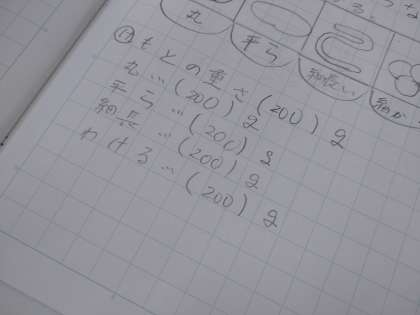 る。
丸
平ら
細長い
細か
⑰もとの重さ(200)g
丸…(200)g
平ら…(200)g
細長…(200)g
わける…(200)g